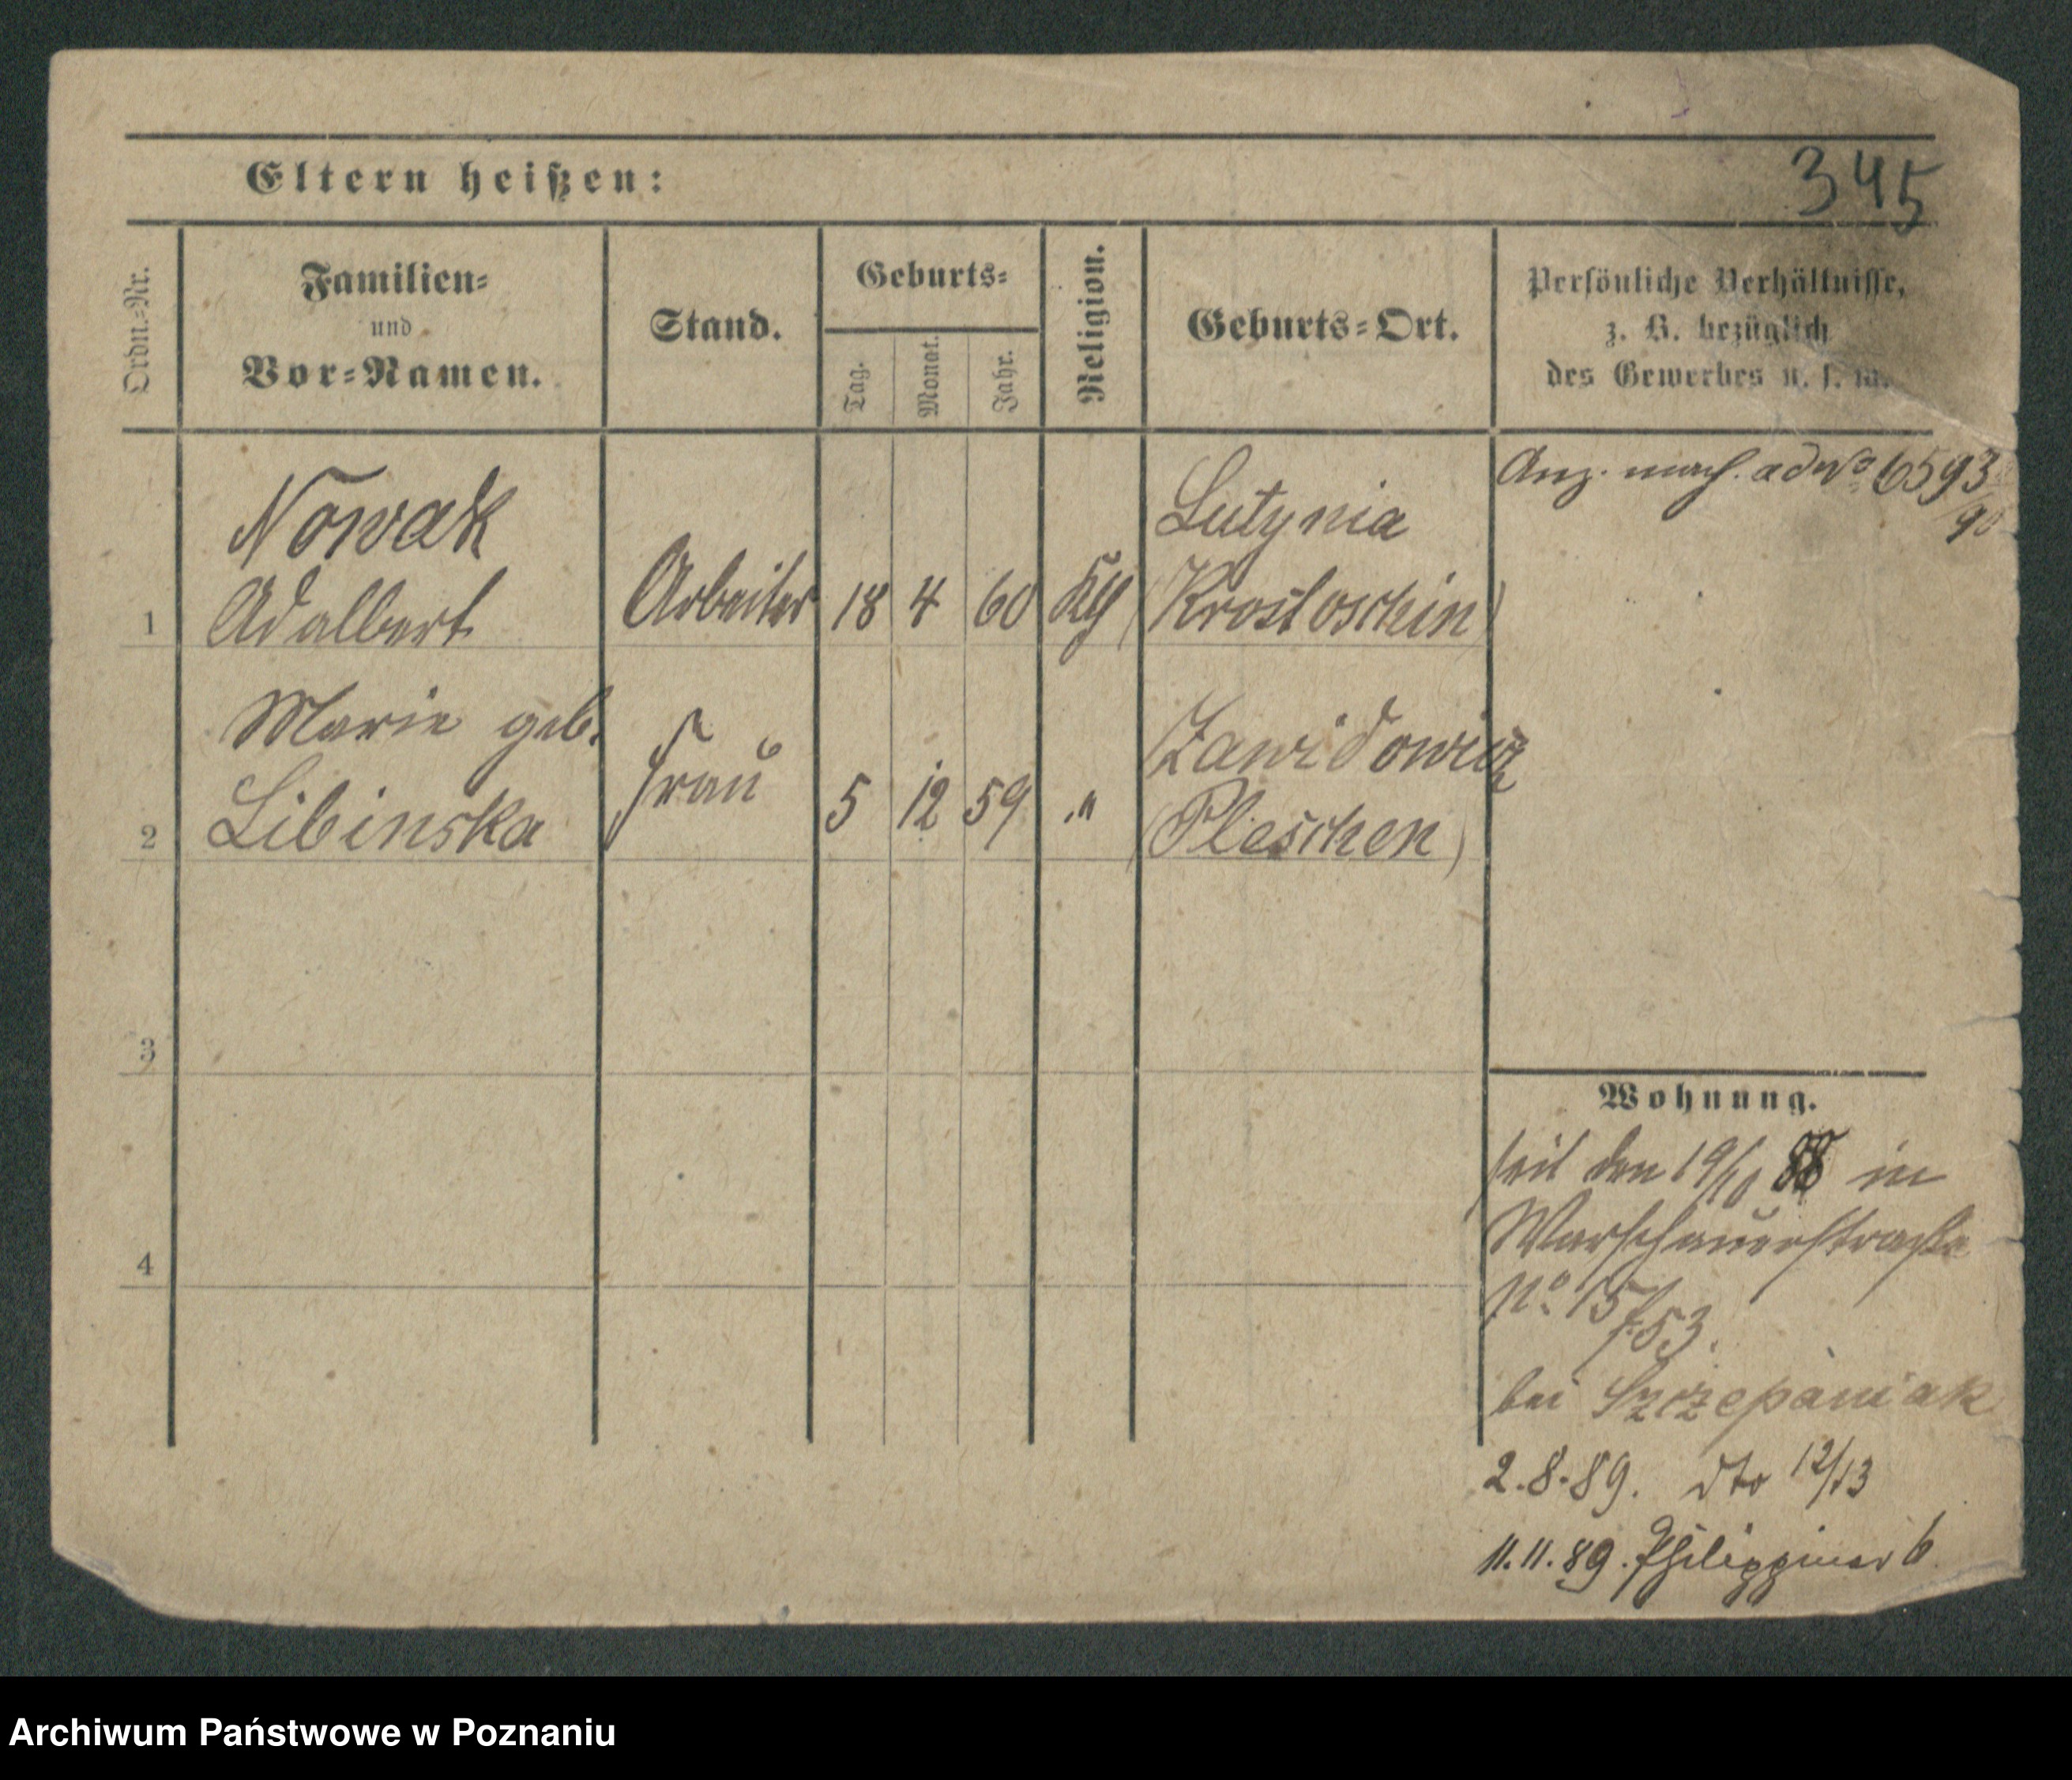 345
Eltern heißen:
Ordn.-Nr.
Familien-
und
Vor-Namen.
Stand.
Geburts-
Tag.
Monat.
Jahr.
Religion.
Geburts-Ort.
Persönliche Verhältnisse,
z. B. bezüglich
des Gewerbes u. s. w.
1
Nowak
Adalbert
Arbeiter
18
4
60
Kth
Lutynia
(Krostoschin)
Anz. ad No 6593/90
2
Marie geb.
Libinska
Frau
5
12
59
"
Zawidowicz
(Pleschen)
3
4
Wohnung.
seit den 19/10 88 in
Warschauerstraße
No. 15
f. 53.
bei Szczepaniak
2.8.89. dto 12/13
11.11.89. Philippiner 6
Archiwum Państwowe w Poznaniu